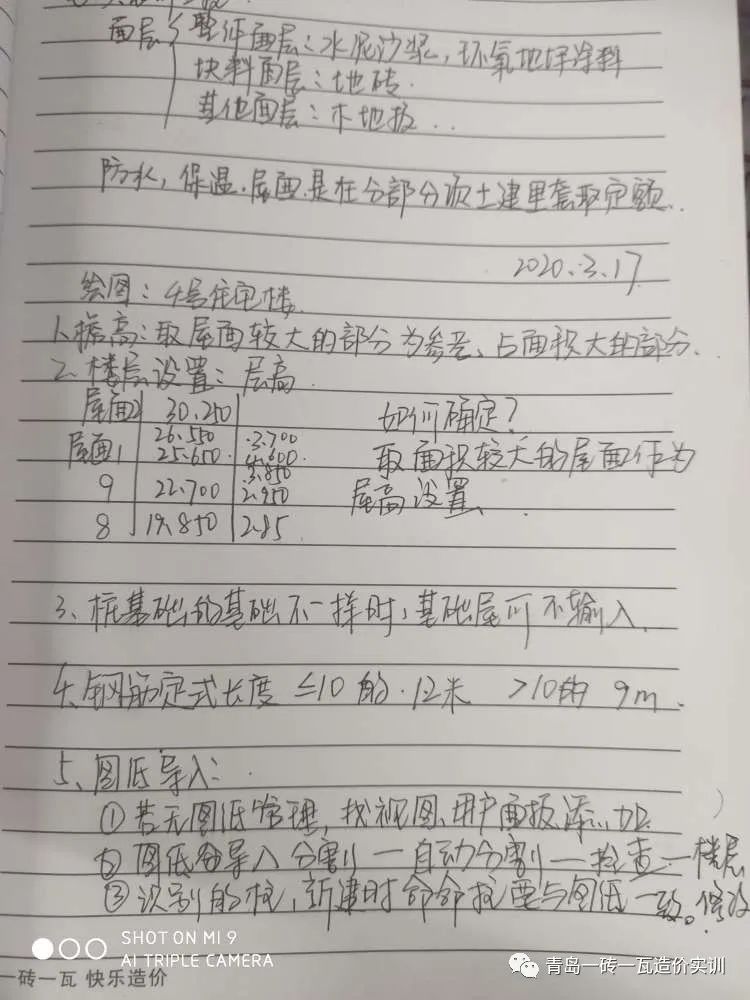 面层 整体面层:水泥沙浆,环氧地坪涂料
块料面层:地砖.
其他面层:木地板...
防水,保温.屋面.是在分部分项土建里套取定额.
2020.3.17
绘图:4号住宅楼.
1.檐高:取屋面较大的部分为参考、占面积大的部分.
2.楼层设置:层高.
屋面2 30.250 如何确定?
26.550 3.700
屋面1 25.650 4.600 取面积较大的屋面作为
3.850
9 22.700 2.950 层高设置.
8 19.850 2.85
3、桩基础的基础不一样时,基础层可不输入.
4.钢筋定式长度 ≤10的.12米 >10的 9m.
5、图纸导入:
①若无图纸管理,找视图、用户面板添加.
②图纸导入分割—自动分割—检查—楼层
③识别的柱,新建时命名柱要与图纸一致。修改
SHOT ON MI 9
AI TRIPLE CAMERA
一砖一瓦 快乐造价
青岛一砖一瓦造价实训